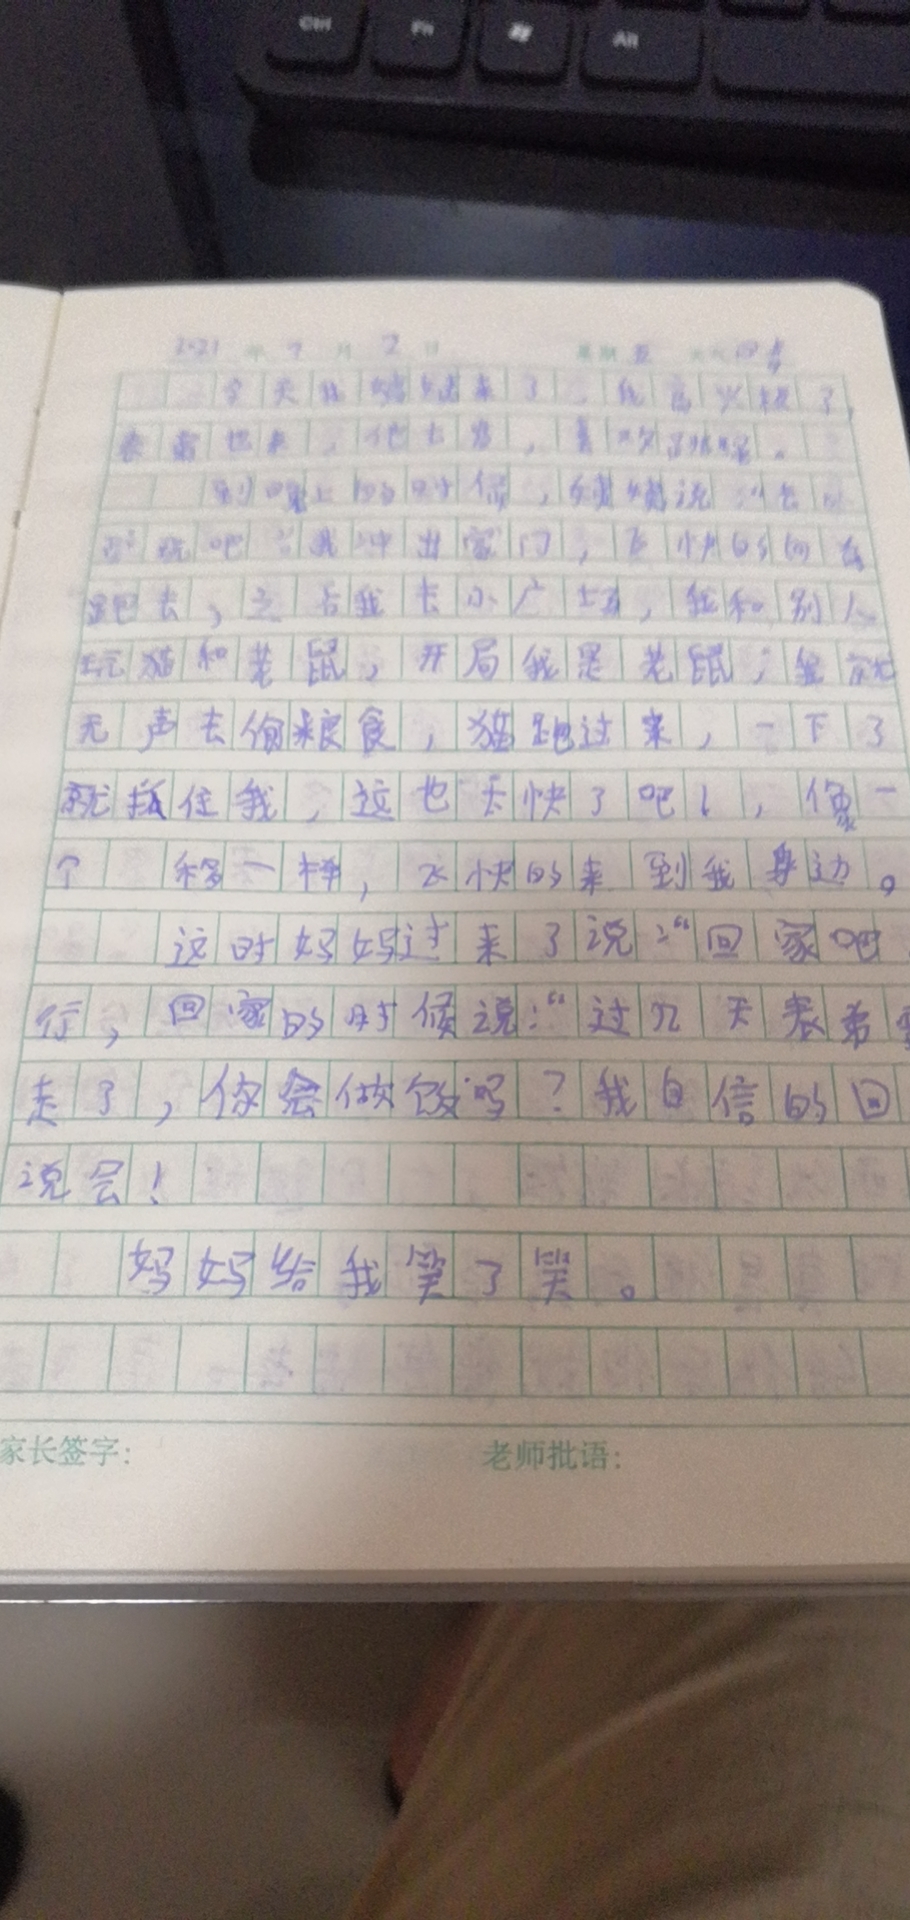 Ctrl Fn Alt
2021 年 7 月 2 日 星期 五 天气
今天我 来了，我高兴极了，
表弟也来，他去 ，喜欢
到晚上的时候，说 去
玩吧 我冲出家门，飞快的向
跑去，之后我去小广场，我和别人
玩猫和老鼠，开局我是老鼠，
无声去偷粮食，猫跑过来，一下了
就抓住我，这也太快了吧！，像一
个 一样，飞快的来到我身边。
这时妈妈过来了说：“回家吧
行，回家的时候说：“过几天表弟要
走了，你会做饭吗？我自信的回
说会！
妈妈给我笑了笑。
家长签字: 老师批语: